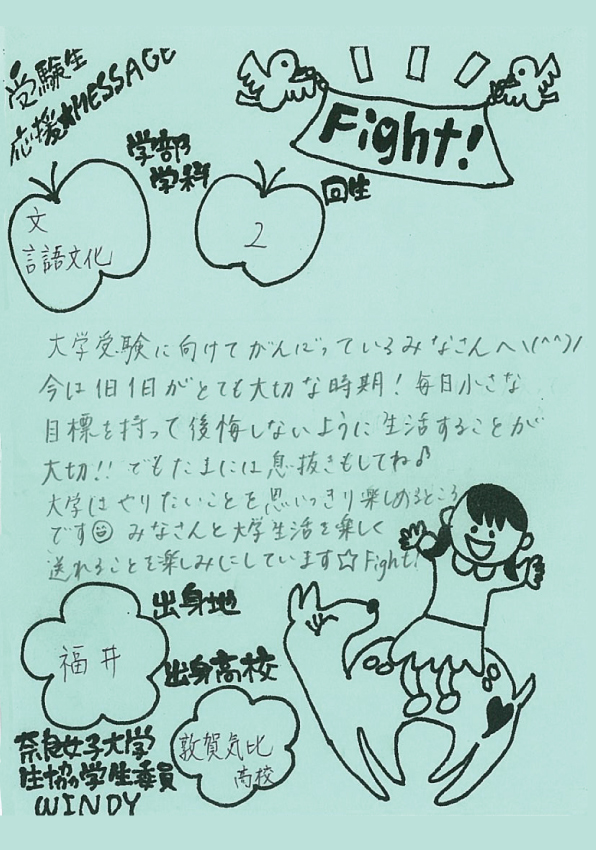 受験生
応援★MESSAGE
Fight!
学部
学科
回生
文
言語文化
2
大学受験に向けてがんばっているみなさんへ\(^^)/
今は1日1日がとても大切な時期！毎日小さな
目標を持って後悔しないように生活することが
大切!!でもたまには息抜きもしてね♪
大学はやりたいことを思いっきり楽しめるところ
です☺みなさんと大学生活を楽しく
送れることを楽しみにしています☆Fight!
出身地
福井
出身高校
敦賀気比
高校
奈良女子大学
生協の学生委員
WINDY